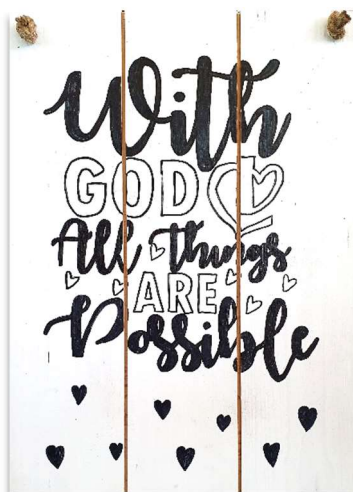 With
GOD
All things
ARE
Possible